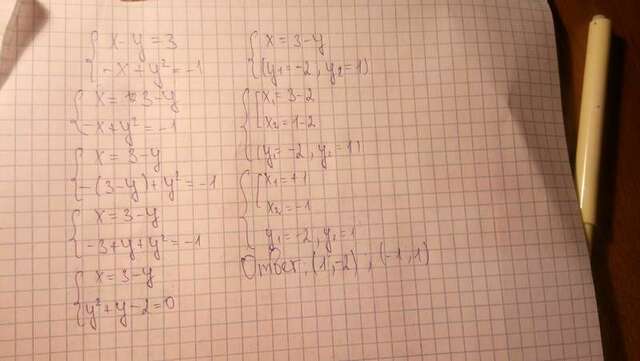 x - y = 3
-x + y² = -1
x = 3 - y
-x + y² = -1
x = 3 - y
-(3-y) + y² = -1
x = 3 - y
-3 + y + y² = -1
x = 3 - y
y² + y - 2 = 0
x = 3 - y
(y₁ = -2, y₂ = 1)
x₁ = 3 - 2
x₂ = 1 - 2
(y₁ = -2, y₂ = 1)
x₁ = +1
x₂ = -1
y₁ = -2, y₂ = 1
Ответ: (1, -2), (-1, 1)